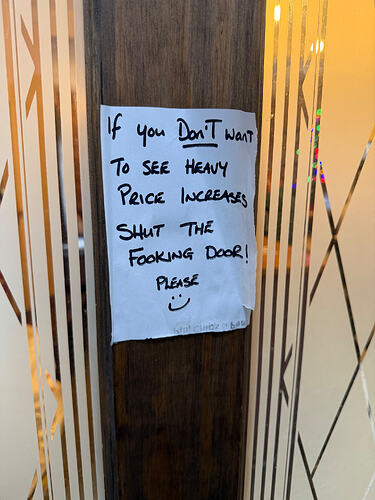 If you Don't want
To see Heavy
Price Increases
Shut The
Fooking Door!
Please